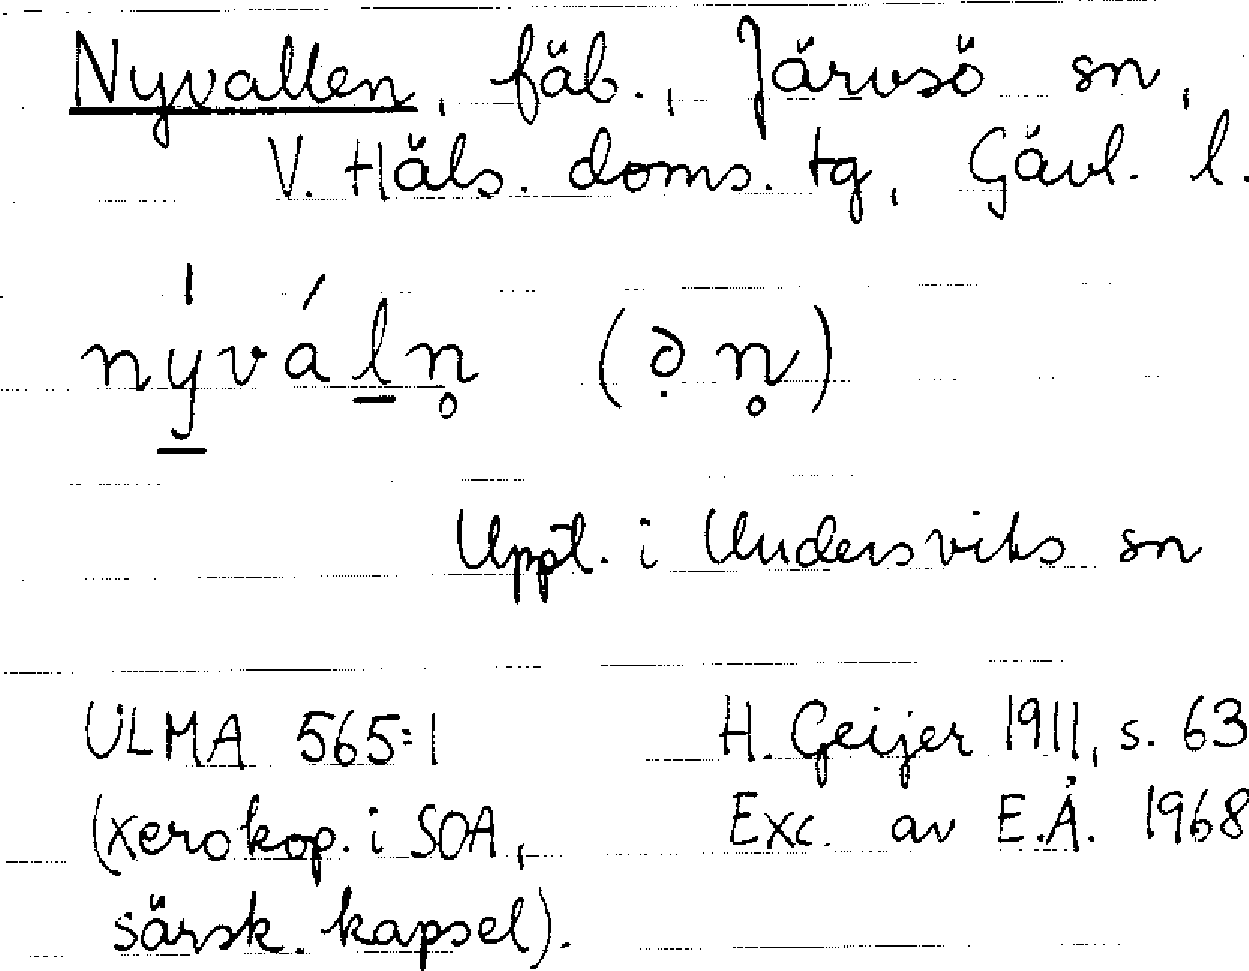 Nyvallen, fäb., Järvsö sn,
V. Häls. doms. tg, Gävl. l.
ny̲̍váḻn̥ (ə̣n̥)
Uppt. i Undersviks sn
ULMA 565:1 H. Geijer 1911, s. 63
(xerokop. i SOA, Exc. av E.Å. 1968
särsk. kapsel).